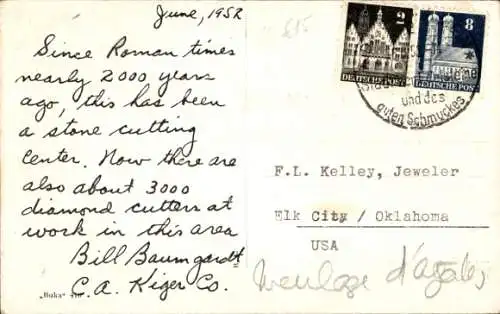 June, 1952
£15
Since Roman times
nearly 2000 years
ago, this has been
a stone cutting
center. Now there are
also about 3000
diamond cutters at
work in this area
Bill Baumgardt
C.A. Kiger Co.
"Buka"
2
DEUTSCHE POST
8
DEUTSCHE POST
und des
guten Schmuckes
F.L. Kelley, Jeweler
Elk City / Oklahoma
USA
d'agates